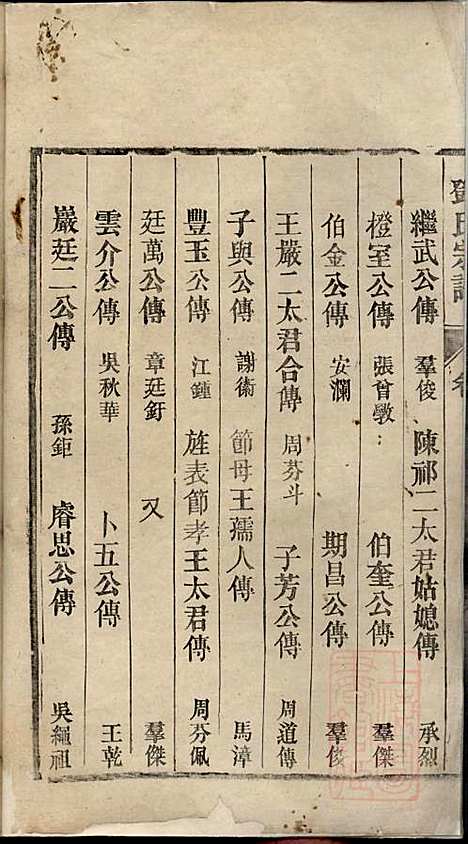 鄧氏宗譜
繼武公傳 羣俊 陳祁二太君姑媳傳 承烈
橙室公傳 張曾敭 伯奎公傳 羣傑
伯金公傳 安瀾 期昌公傳 羣俊
王嚴二太君合傳 周芬斗 子芳公傳 周道傳
子與公傳 謝衛 節母王孺人傳 馬漳
豐玉公傳 江鍾 旌表節孝王太君傳 周芬佩
廷萬公傳 章廷釪 又 羣傑
雲介公傳 吳秋華 卜五公傳 王乾
巖廷二公傳 孫鉅 睿思公傳 吳繩祖